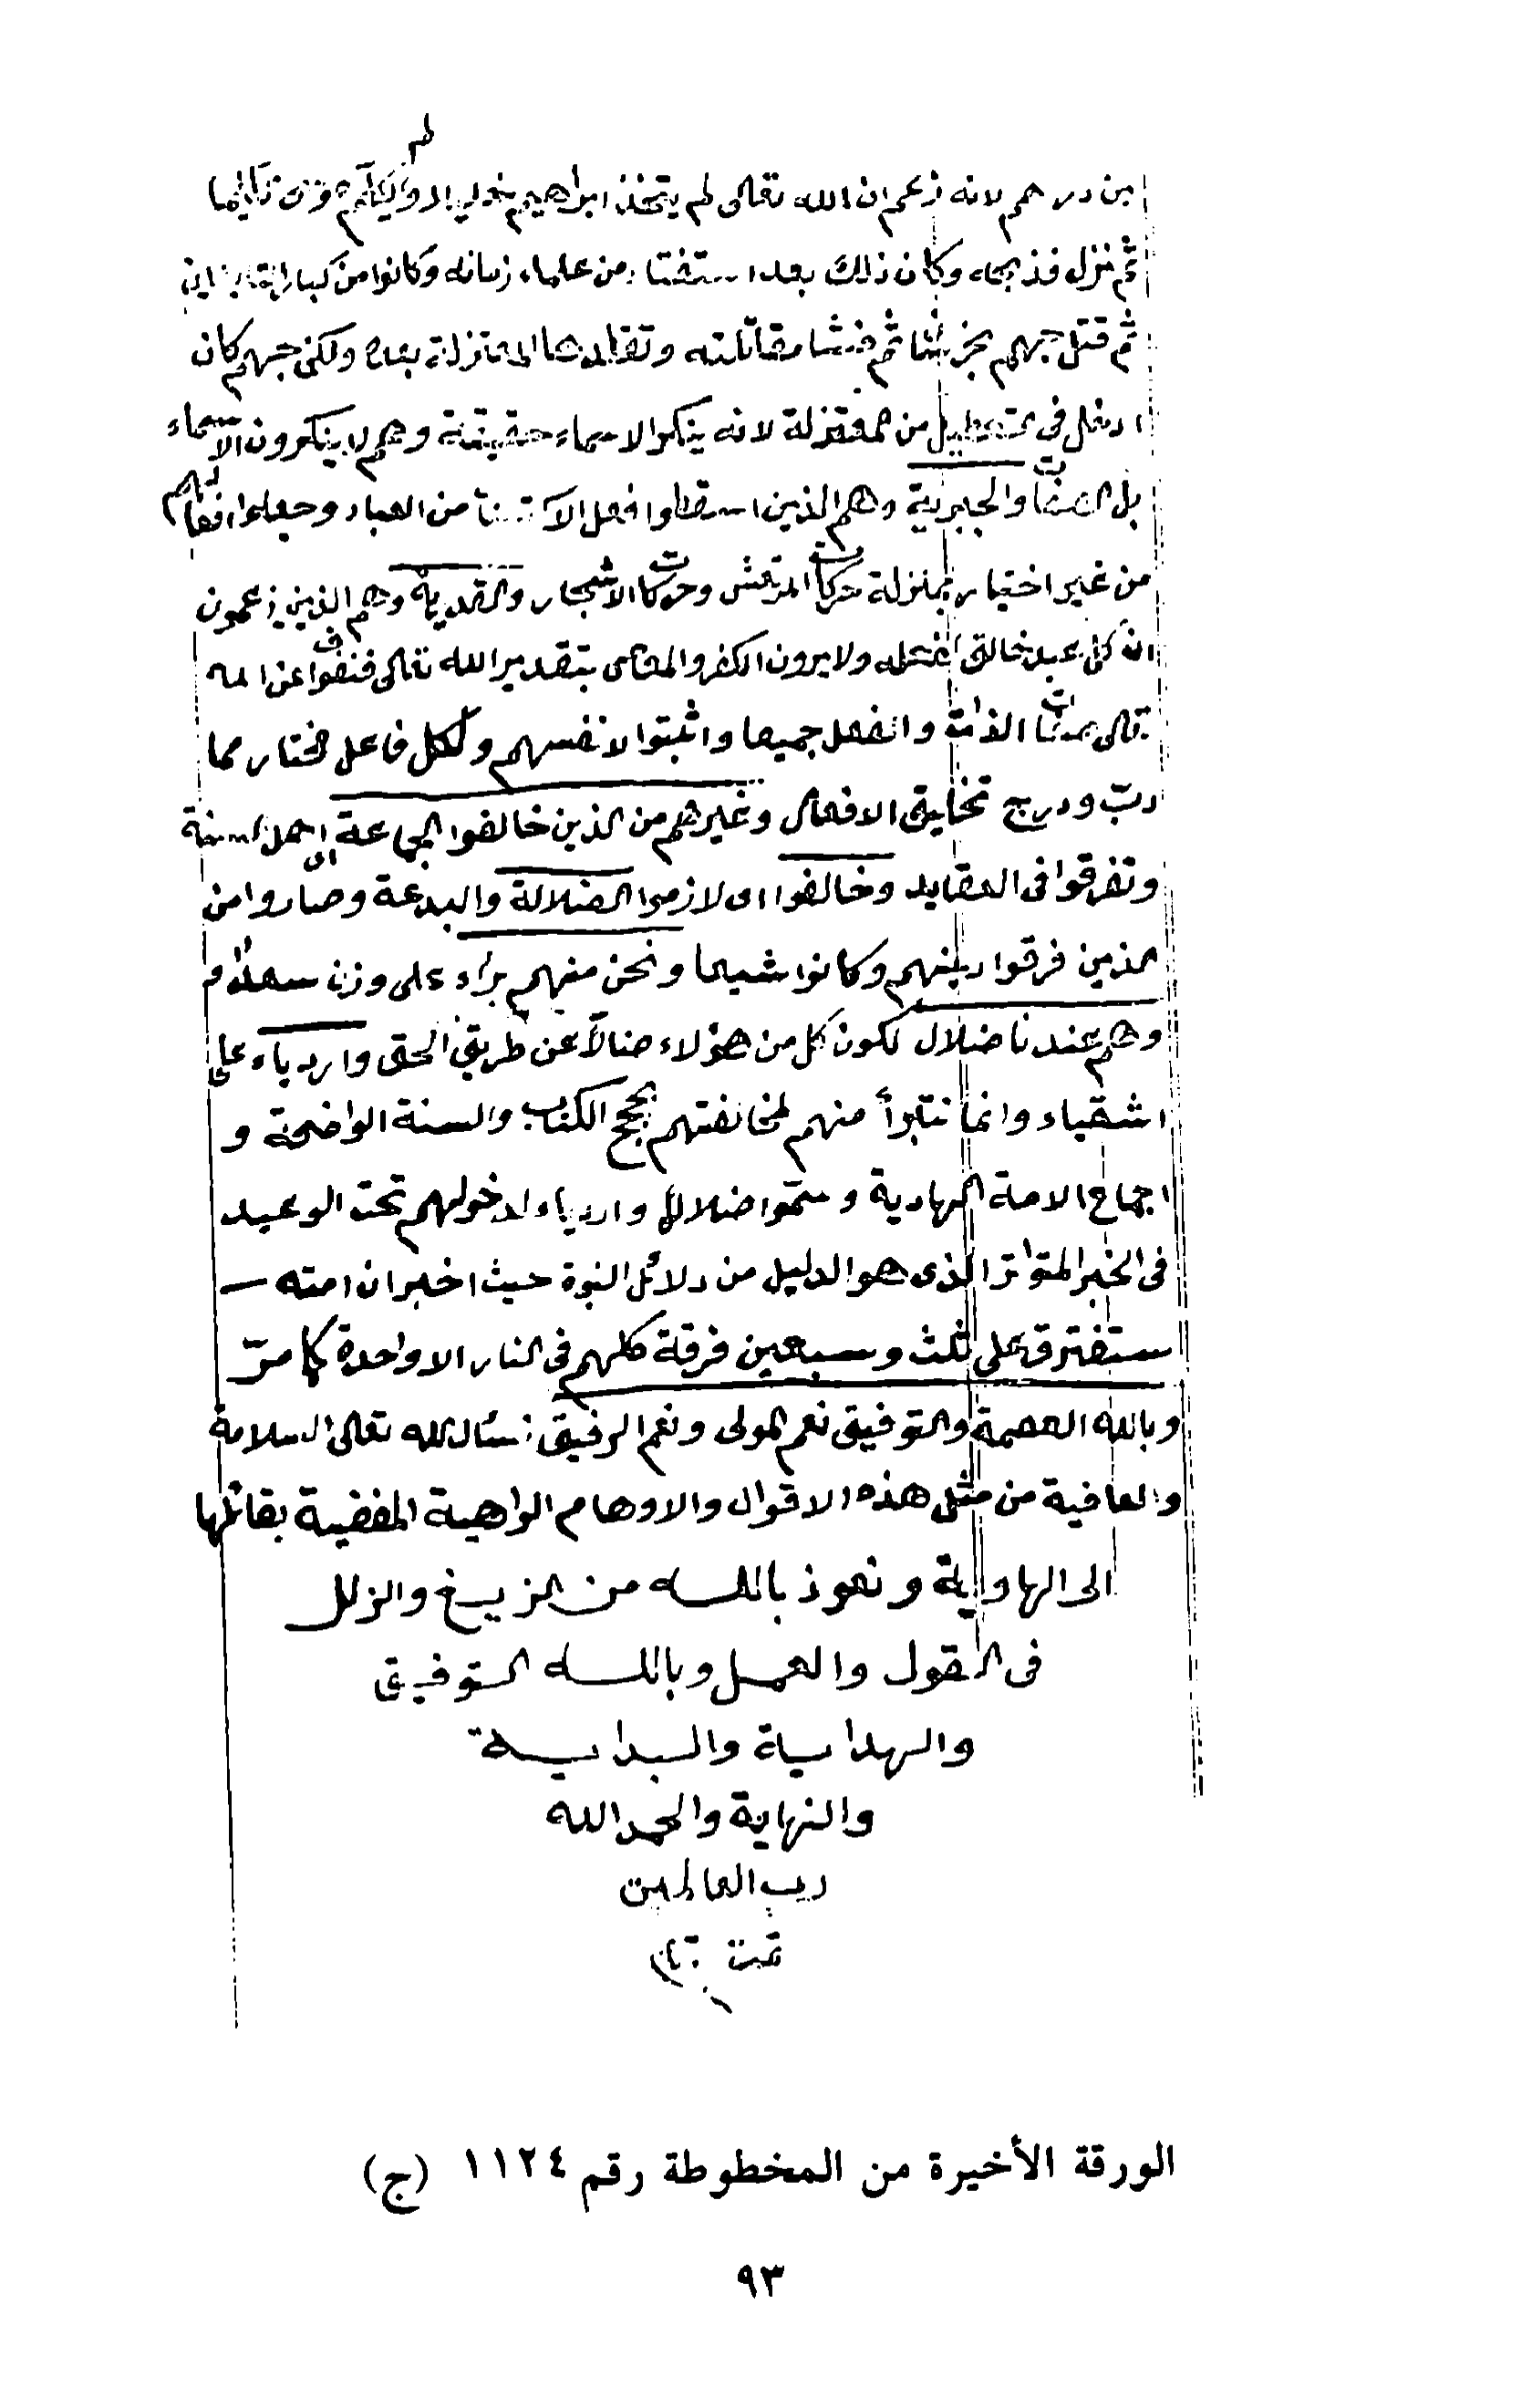 بن درهم لانه زعم ان الله تعالى لم يتخذ ابراهيم خليلا ولم يكلم موسى تكليما
ثم نزل فذبحه وكان ذلك بعد استفتاء من علماء زمانه وكانوا من كبار التابعين
ثم قتل جهم بخراسان ثم فشا مقالته وتقلدها المعتزلة بعده ولكن جهم كان
ادخل في التعطيل من المعتزلة لانه ينكر الاسماء حقيقة وهم لا ينكرون الاسماء
بل الصفات والجبرية وهم الذين اسقطوا فعل من العباد وجعلوا افعالهم
من غير اختيار بمنزلة حركات المرتعش وحركات الاشجار والقدرية وهم الذين زعمون
ان كل عبد خالق لفعله ولا يرون الكفر والمعاصى بتقدير الله تعالى فنفوا عن الله
تعالى صفات الذات والفعل جميعا واثبتوا لانفسهم ولكل فاعل مختار مما
دبّ ودرج تخليق الافعال وغيرهم من الذين خالفوا الجماعة اى اهل السنة
وتفرقوا فى العقايد وخالفوا اى لازموا الضلالة والبدعة وصاروا من
الذين فرقوا دينهم وكانوا شيعا ونحن منهم براء على وزن
وهم عندنا ضلال لكون كل من هؤلاء ضالاً عن طريق الحق وارد ياء على
اشقياء وانما نتبرأ منهم لمخالفتهم بحجج الكتاب والسنة الواضحة و
اجماع الامة الهادية وسمّوا ضلالا وارد ياء لدخولهم تحت الوعيد
فى الخبر المتواتر الذى هو الدليل من دلائل النبوة حيث اخبر ان امته
ستفترق على ثلث وسبعين فرقة كلهم فى النار الا واحدة كما مرّ
وبالله العصمة والتوفيق نعم المولى ونعم الرفيق نسئال الله تعالى السلامة
والعافية من مثل هذه الاقوال والاوهام الواهية المفضية بقائلها
الى الهاوية ونعوذ بالله من الزيغ والزلل
فى القول والعمل وبالله التوفيق
والهداية والبداية
والنهاية والحمد الله
رب العالمين
تمت
الورقة الأخيرة من المخطوطة رقم ١١٢٤ (ج)
٩٣